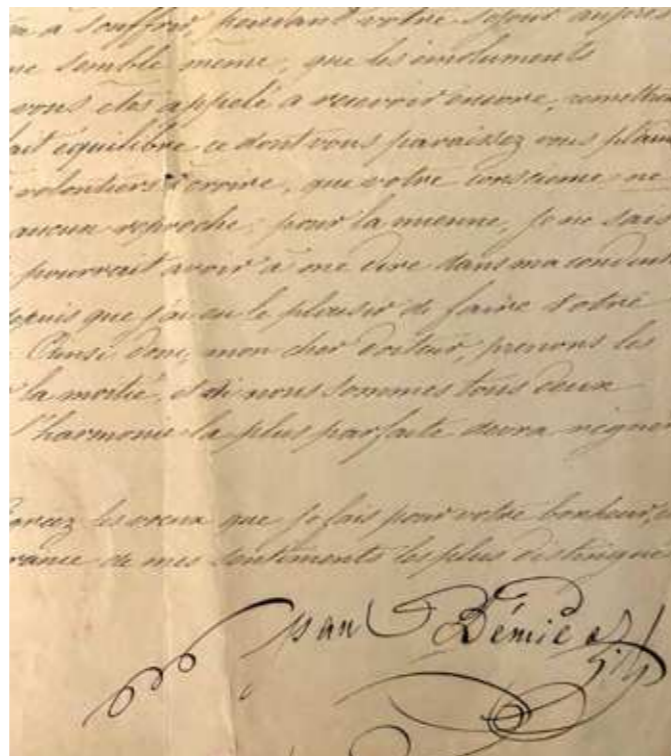 a souffrir, pendant votre séjour auprès
me semble même, que les émoluments
vous êtes appelé à recevoir encore, remettent
fait équilibre ce dont vous paraissez vous plain
volontiers croire, que votre conscience ne
aucun reproche; pour la mienne, je ne sais
pourrait avoir à me dire dans ma conduite
depuis que j'ai eu le plaisir de faire votre
Ainsi donc, mon cher docteur, prenons les
la moitié, et si nous sommes tous deux
l'harmonie la plus parfaite devra régner
les vœux que je fais pour votre bonheur,
de mes sentiments les plus distingués